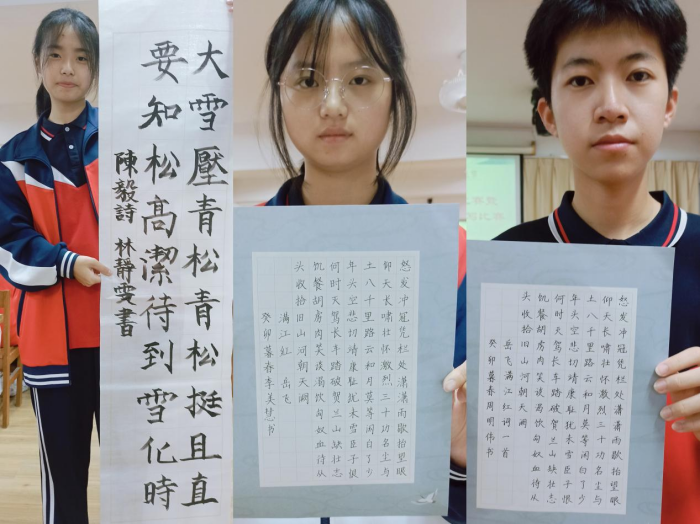 大雪壓青松青松挺且直
要知松高潔待到雪化時
陳毅詩 林靜雯書
怒发冲冠凭栏处潇潇雨歇抬望眼
仰天长啸壮怀激烈三十功名尘与
土八千里路云和月莫等闲白了少
年头空悲切靖康耻犹未雪臣子恨
何时灭驾长车踏破贺兰山缺壮志
饥餐胡虏肉笑谈渴饮匈奴血待从
头收拾旧山河朝天阙
满江红 岳飞
癸卯暮春李美慧书
怒发冲冠凭栏处潇潇雨歇抬望眼
仰天长啸壮怀激烈三十功名尘与
土八千里路云和月莫等闲白了少
年头空悲切靖康耻犹未雪臣子恨
何时灭驾长车踏破贺兰山缺壮志
饥餐胡虏肉笑谈渴饮匈奴血待从
头收拾旧山河朝天阙
岳飞满江红词一首
癸卯暮春周明伟书